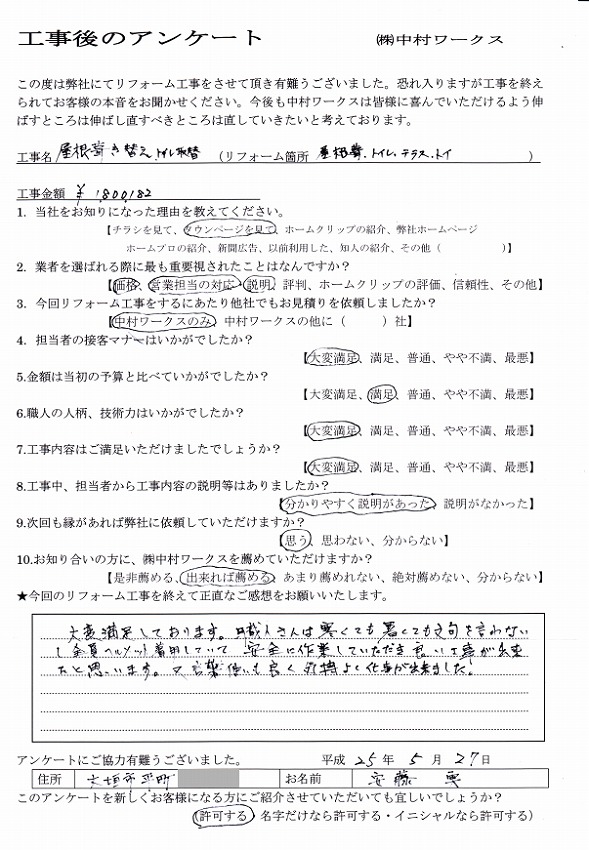 工事後のアンケート ㈱中村ワークス
この度は弊社にてリフォーム工事をさせて頂き有難うございました。恐れ入りますが工事を終え
られてお客様の本音をお聞かせください。今後も中村ワークスは皆様に喜んでいただけるよう伸
ばすところは伸ばし直すべきところは直していきたいと考えております。
工事名 屋根葺き替え、トイレ取替 (リフォーム箇所 屋根葺、トイレ、テラス、 )
工事金額 ¥ 1800182
1. 当社をお知りになった理由を教えてください。
【チラシを見て、タウンページを見て、ホームクリップの紹介、弊社ホームページ
ホームプロの紹介、新聞広告、以前利用した、知人の紹介、その他( )】
2. 業者を選ばれる際に最も重要視されたことはなんですか?
【価格、営業担当の対応、説明、評判、ホームクリップの評価、信頼性、その他】
3. 今回リフォーム工事をするにあたり他社でもお見積りを依頼しましたか?
【中村ワークスのみ、中村ワークスの他に( )社】
4. 担当者の接客マナーはいかがでしたか?
【大変満足、満足、普通、やや不満、最悪】
5.金額は当初の予算と比べていかがでしたか?
【大変満足、満足、普通、やや不満、最悪】
6.職人の人柄、技術力はいかがでしたか?
【大変満足、満足、普通、やや不満、最悪】
7.工事内容はご満足いただけましたでしょうか?
【大変満足、満足、普通、やや不満、最悪】
8.工事中、担当者から工事内容の説明等はありましたか?
【分かりやすく説明があった、説明がなかった】
9.次回も縁があれば弊社に依頼していただけますか?
【思う、思わない、分からない】
10.お知り合いの方に、㈱中村ワークスを薦めていただけますか?
【是非薦める、出来れば薦める、あまり薦めれない、絶対薦めない、分からない】
★今回のリフォーム工事を終えて正直なご感想をお願いいたします。
大変満足しております。職人さんは寒くても暑くても文句を言わない
し全員ヘルメット着用していて 安全に作業していただき良い工事が出来
たと思います。又言葉使いも良く気持よく仕事が出来ました!
アンケートにご協力有難うございました。 平成 25 年 5 月 27 日
住所 大垣市平町 お名前 安藤
このアンケートを新しくお客様になる方にご紹介させていただいても宜しいでしょうか?
(許可する)名字だけなら許可する・イニシャルなら許可する)